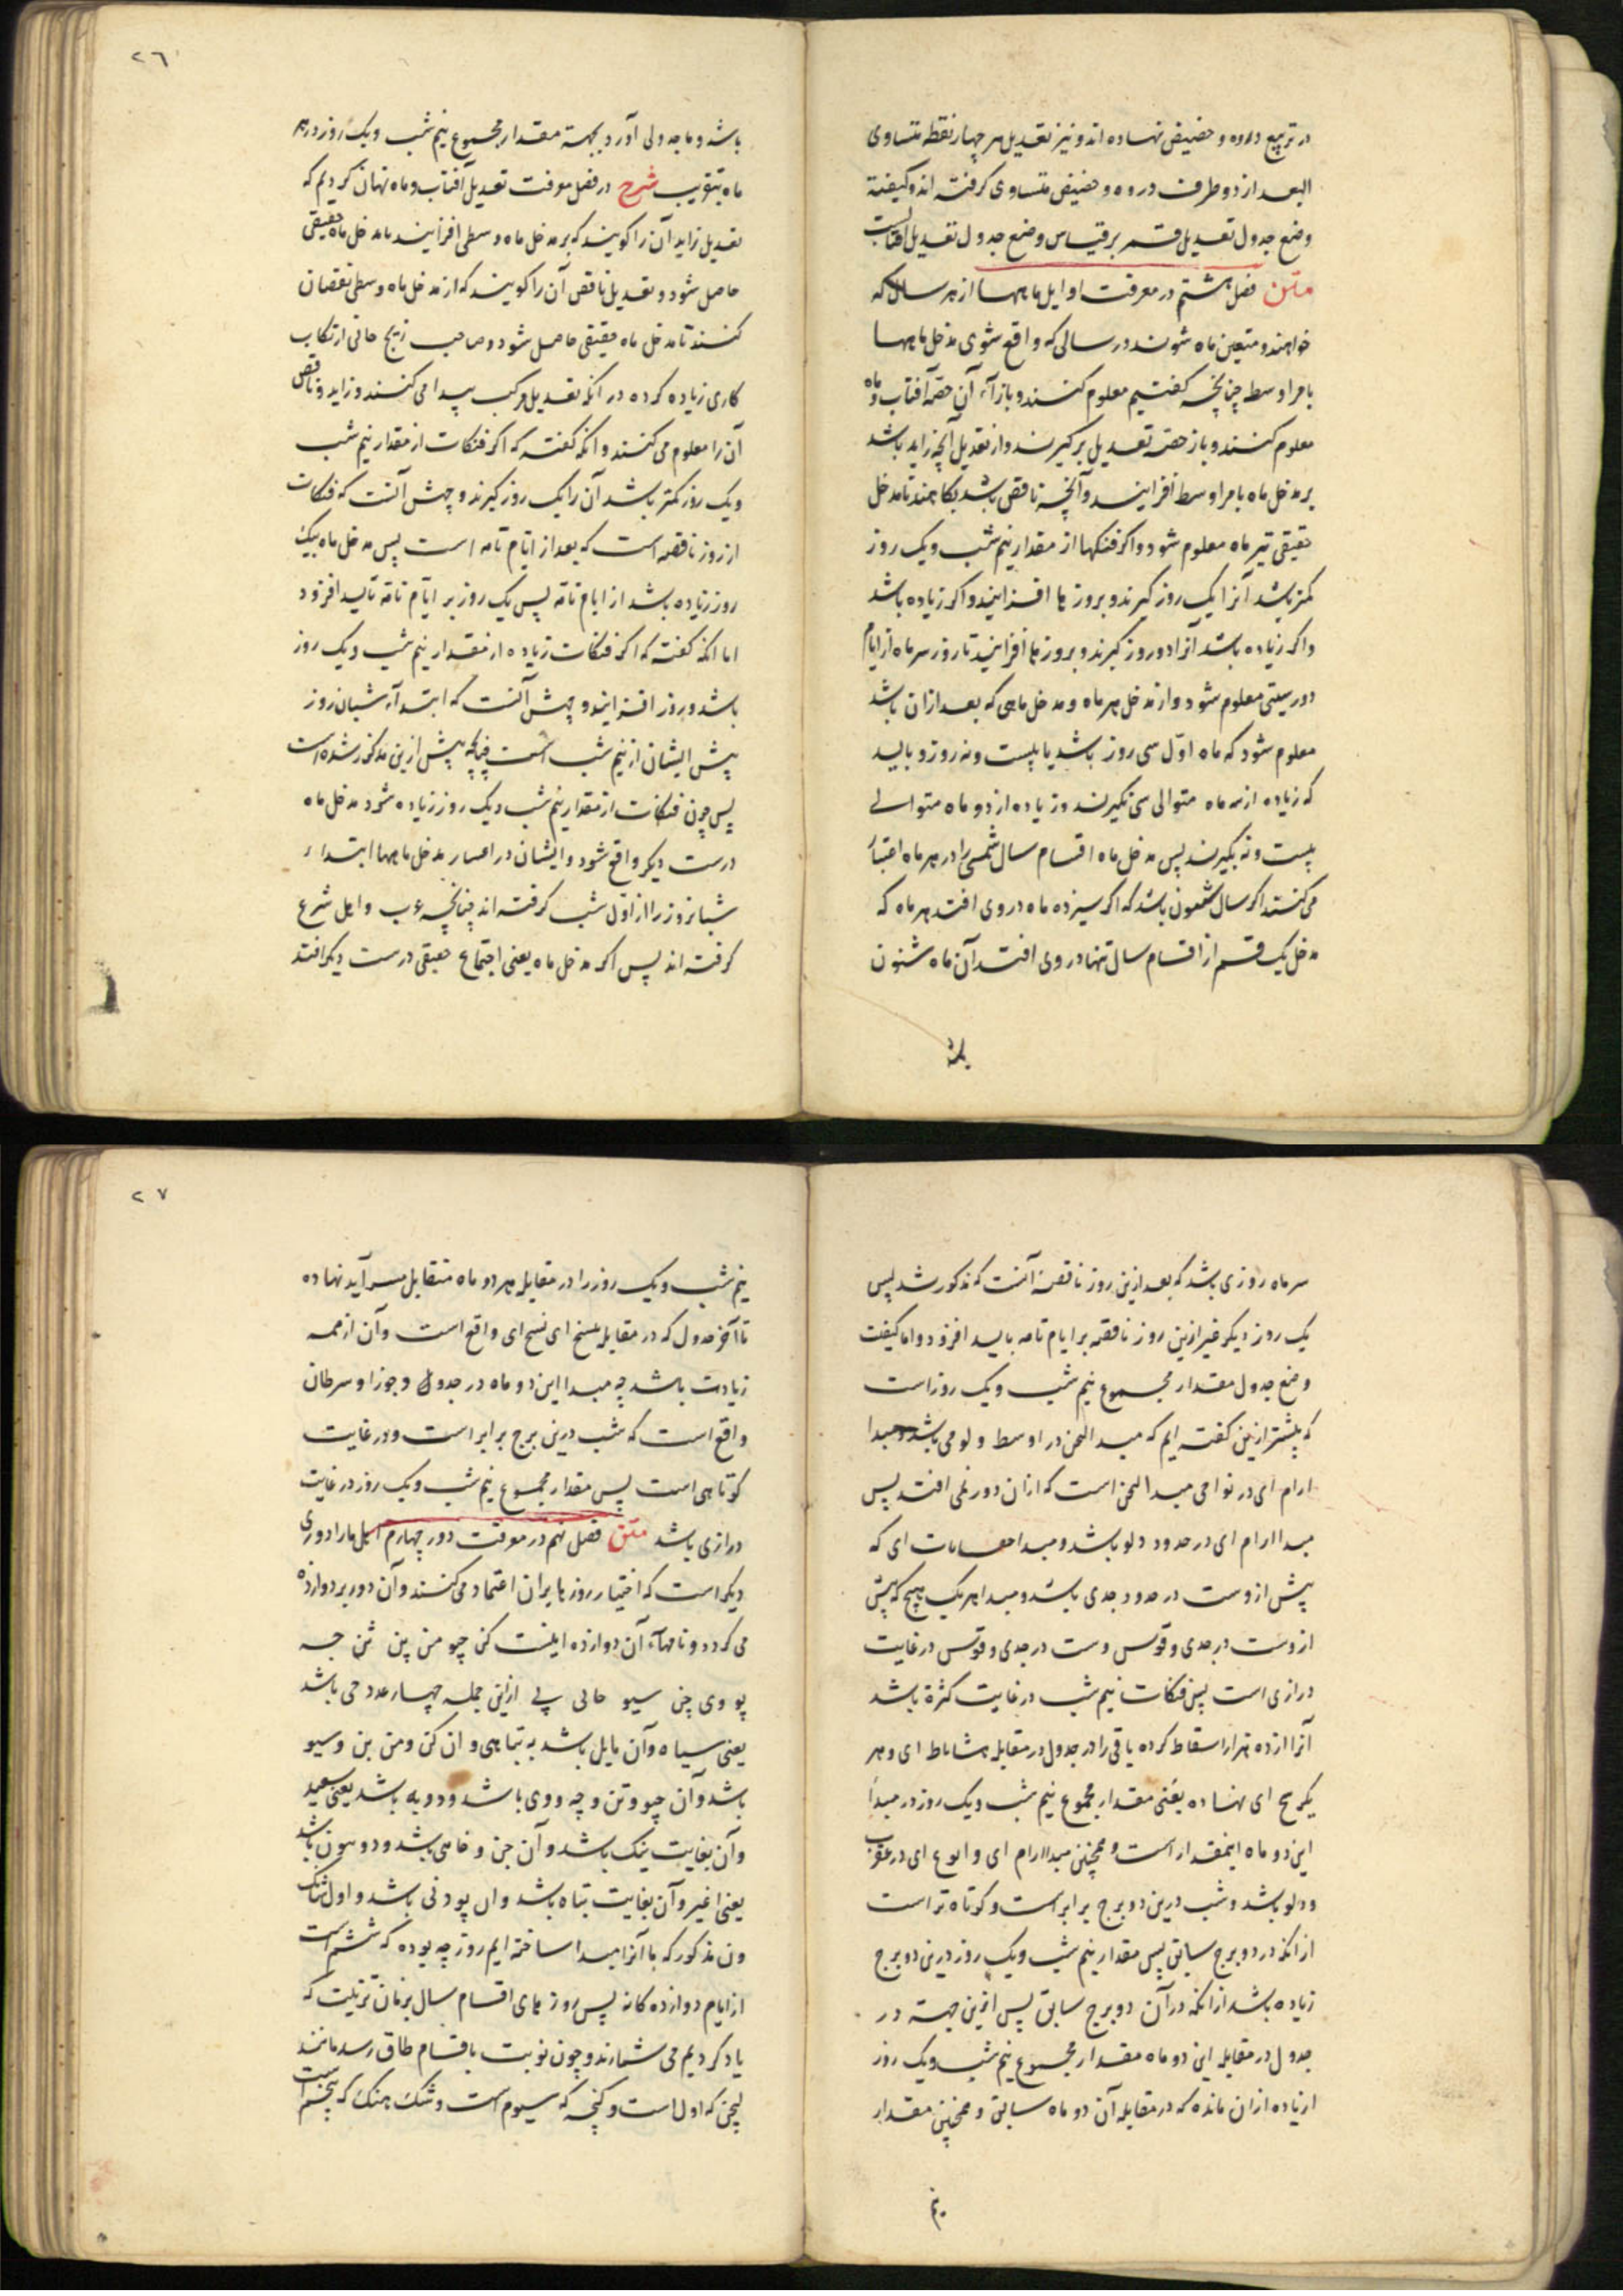 در تربیع ذروه و حضیض نهاده اند و نیز تعدیل هر چهار نقطه متساوی
البعد از دو طرف ذروه و حضیض متساوی گرفته اند و کیفیة
وضع جدول تعدیل قمر بر قیاس وضع جدول تعدیل آفتابست
متن فصل هشتم در معرفت اوایل ماهها از هر سال که
خواهند و متعین ماه شون در سالی که واقع شوی مدخل ماهها
بامر اوسط چنانچه گفتیم معلوم کنند و بازآء آن حصه آفتاب و ماه
معلوم کنند و باز حصه تعدیل برگیرند و از تعدیل آنچه زاید باشد
بر مدخل ماه بامر اوسط افزایند و آنچه ناقص باشد بکاهند تا مدخل
حقیقی تیر ماه معلوم شود و اگر فنکها از مقدار نیم شب و یک روز
کمتر باشد آنرا یک روز گیرند و بروزها افزایند و اگر زیاده باشد
و اگر زیاده باشد آنرا دو روز گیرند و بروزها افزایند تا روز سر ماه از ایام
دور ستی معلوم شود و از مدخل هر ماه و مدخل ماهی که بعد از ان باشد
معلوم شود که ماه اول سی روز باشد یا بیست و نه روز و باید
که زیاده از سه ماه متوالی سی نگیرند و زیاده از دو ماه متوالی
بیست و نه نگیرند پس مدخل ماه اقسام سال شمسی را در هر ماه اعتبار
می کنند اگر سال شون باشد که اگر سیزده ماه در وی افتد هر ماه که
مدخل یک قسم از اقسام سال تنها در وی افتد آن ماه شون
باشد
٢٦
باشد و ما جدولی آورد بجهة مقدار مجموع نیم شب و یک روز در هر
ماه بتقریب شرح در فصل معرفت تعدیل آفتاب و ماه بیان کردیم که
تعدیل زاید آن را گویند که بر مدخل ماه وسطی افزایند تا مدخل ماه حقیقی
حاصل شود و تعدیل ناقص آن را گویند که از مدخل ماه وسطی نقصان
کنند تا مدخل ماه حقیقی حاصل شود و صاحب زیج خانی ارتکاب
کاری زیاده کرده در آنکه تعدیل مرکب پیدا می کنند و زاید و ناقص
آن را معلوم می کنند و آنکه گفته که اگر فنکات از مقدار نیم شب
و یک روز کمتر باشد آن را یک روز گیرند وجهش آنست که فنکات
از روز ناقصه است که بعد از ایام تامه است پس مدخل ماه بیک
روز زیاده باشد از ایام تامه پس یک روز بر ایام تامه باید افزود
اما آنکه گفته که اگر فنکات زیاده از مقدار نیم شب و یک روز
باشد دو روز افزایند وجهش آنست که ابتدآء شبان روز
پیش ایشان از نیم شب است چنانچه پیش ازین مذکور شده است
پس چون فنکات از مقدار نیم شب و یک روز زیاده شود مدخل ماه
درست دیگر واقع شود و ایشان در اعتبار مدخل ماهها ابتداء
شبانروز را از اول شب گرفته اند چنانچه عرب و اهل شرع
گرفته اند پس اگر مدخل ماه یعنی اجتماع حقیقی درست دیگر افتد
سر ماه روزی باشد که بعد ازین روز ناقصه آنست که مذکور شد پس
یک روز دیگر غیر ازین روز ناقصه بر ایام تامه باید افزود و اما کیفیت
وضع جدول مقدار مجموع نیم شب و یک روز است
که پیشتر ازین گفته ایم که مبدا لحن در اوسط دلو می باشد و مبدا
ارام ای در نواحی مبدا لحن است که از ان دور نمی افتد پس
مبدا ارام ای در حدود دلو باشد و مبدا ای که
پیش ازوست در حدود جدی باشد و مبدا هر یک که پیش
ازوست در جدی و قوس و شب در جدی و قوس در غایت
درازی است پس فنکات نیم شب در غایت کثرة باشد
آنرا از ده هزار اسقاط کرده باقی را در جدول در مقابله ای و هر
ای نهاده یعنی مقدار مجموع نیم شب و یک روز در مبدأ
این دو ماه اینمقدار است و همچنین مبدا ارام ای و ای در عقرب
و دلو باشد و شب درین دو برج برابر است و کوتاه تر است
از آنکه در دو برج سابق پس مقدار نیم شب و یک روز درین دو برج
زیاده باشد از انکه در آن دو برج سابق پس ازین جهة در
جدول در مقابله این دو ماه مقدار مجموع نیم شب و یک روز
زیاده از ان مانده که در مقابله آن دو ماه سابق و همچنین مقدار
نیم
٢٧
نیم شب و یک روز را در مقابله هر دو ماه متقابل نهاده
تا آخر جدول که در مقابله ای ای واقع است و آن از همه
زیادت باشد چه مبدا این دو ماه در جدول و جوزا و سرطان
واقع است که شب درین برج برابر است و در غایت
کوتاهی است پس مقدار مجموع نیم شب و یک روز در غایت
درازی باشد متن فصل نهم در معرفت دور چهارم دوری
دیگر است که اختیار روزها بر ان اعتماد می کنند و آن دور بر دوازده
می گردد و نامهاء آن دوازده اینست کن چو من پن تن چه
پو وی چن سیو خای پی ازین جمله چهار عدد خی باشد
یعنی سیاه و آن مایل باشد به تباهی و ان کن و من پن و سیو
باشد و آن چو و تن و چه و وی باشد و دو به باشد یعنی سعید
و آن بغایت نیک باشد و آن چن و خای باشد و دو هون باشد
یعنی اغیر و آن بغایت تباه باشد و ان پو و پی باشد و اول شانک
ون مذکور که ما آنرا مبدا ساخته ایم روز چه بوده که ششم است
از ایام دوازده گانه پس روزهای اقسام سال بر همان ترتیب که
یاد کردیم می شمارند و چون نوبت باقسام طاق رسد مانند
لیچن که اول است و کنچه که سیوم است و شنک هنک که پنجم است